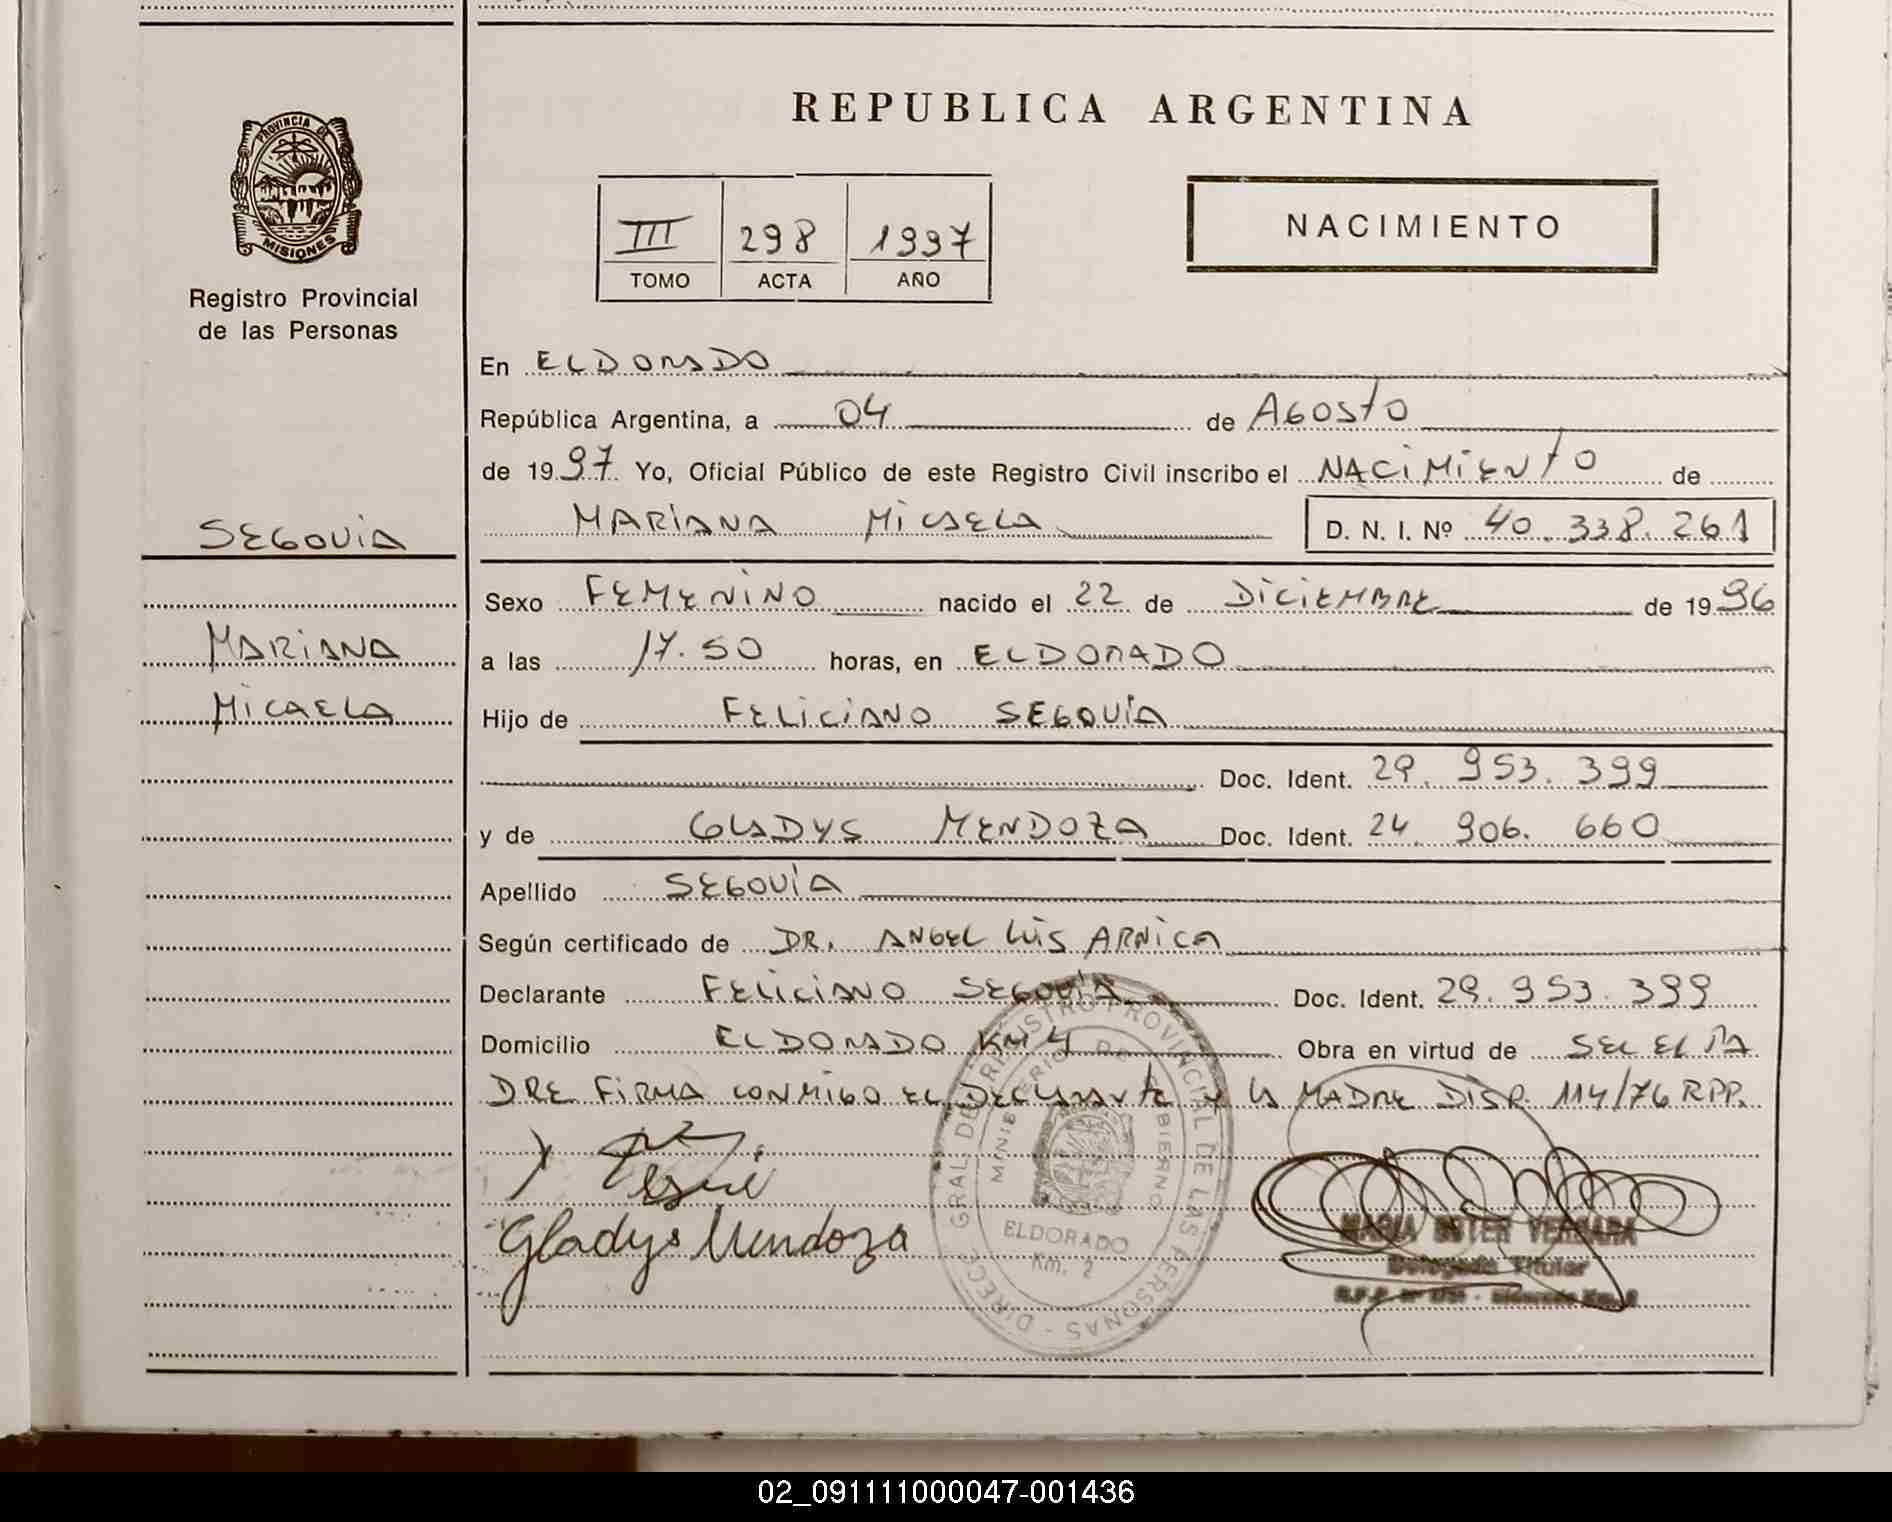 PROVINCIA DE
MISIONES
Registro Provincial
de las Personas
SEGOVIA
MARIANA
MICAELA
REPUBLICA ARGENTINA
III 298 1997
TOMO ACTA AÑO
NACIMIENTO
En ELDORADO
República Argentina, a 04 de AGOSTO
de 1997. Yo, Oficial Público de este Registro Civil inscribo el NACIMIENTO de
MARIANA MICAELA D. N. I. Nº 40.338.261
Sexo FEMENINO nacido el 22 de DICIEMBRE de 1996
a las 17.50 horas, en ELDORADO
Hijo de FELICIANO SEGOVIA
Doc. Ident. 29.953.399
y de GLADYS MENDOZA Doc. Ident. 24.906.660
Apellido SEGOVIA
Según certificado de DR. ANGEL LUIS ARNICA
Declarante FELICIANO SEGOVIA Doc. Ident. 29.953.399
Domicilio ELDORADO KM 4 Obra en virtud de SER EL PA
DRE FIRMA CONMIGO EL DECLARANTE Y LA MADRE DISP. 114/76 RPP.
Gladys Mendoza
DIREC. GRAL. DEL REGISTRO PROVINCIAL DE LAS PERSONAS
MINISTERIO DE GOBIERNO
ELDORADO
Km. 2
MARIA VERGARA
Delegada Titular
02_091111000047-001436